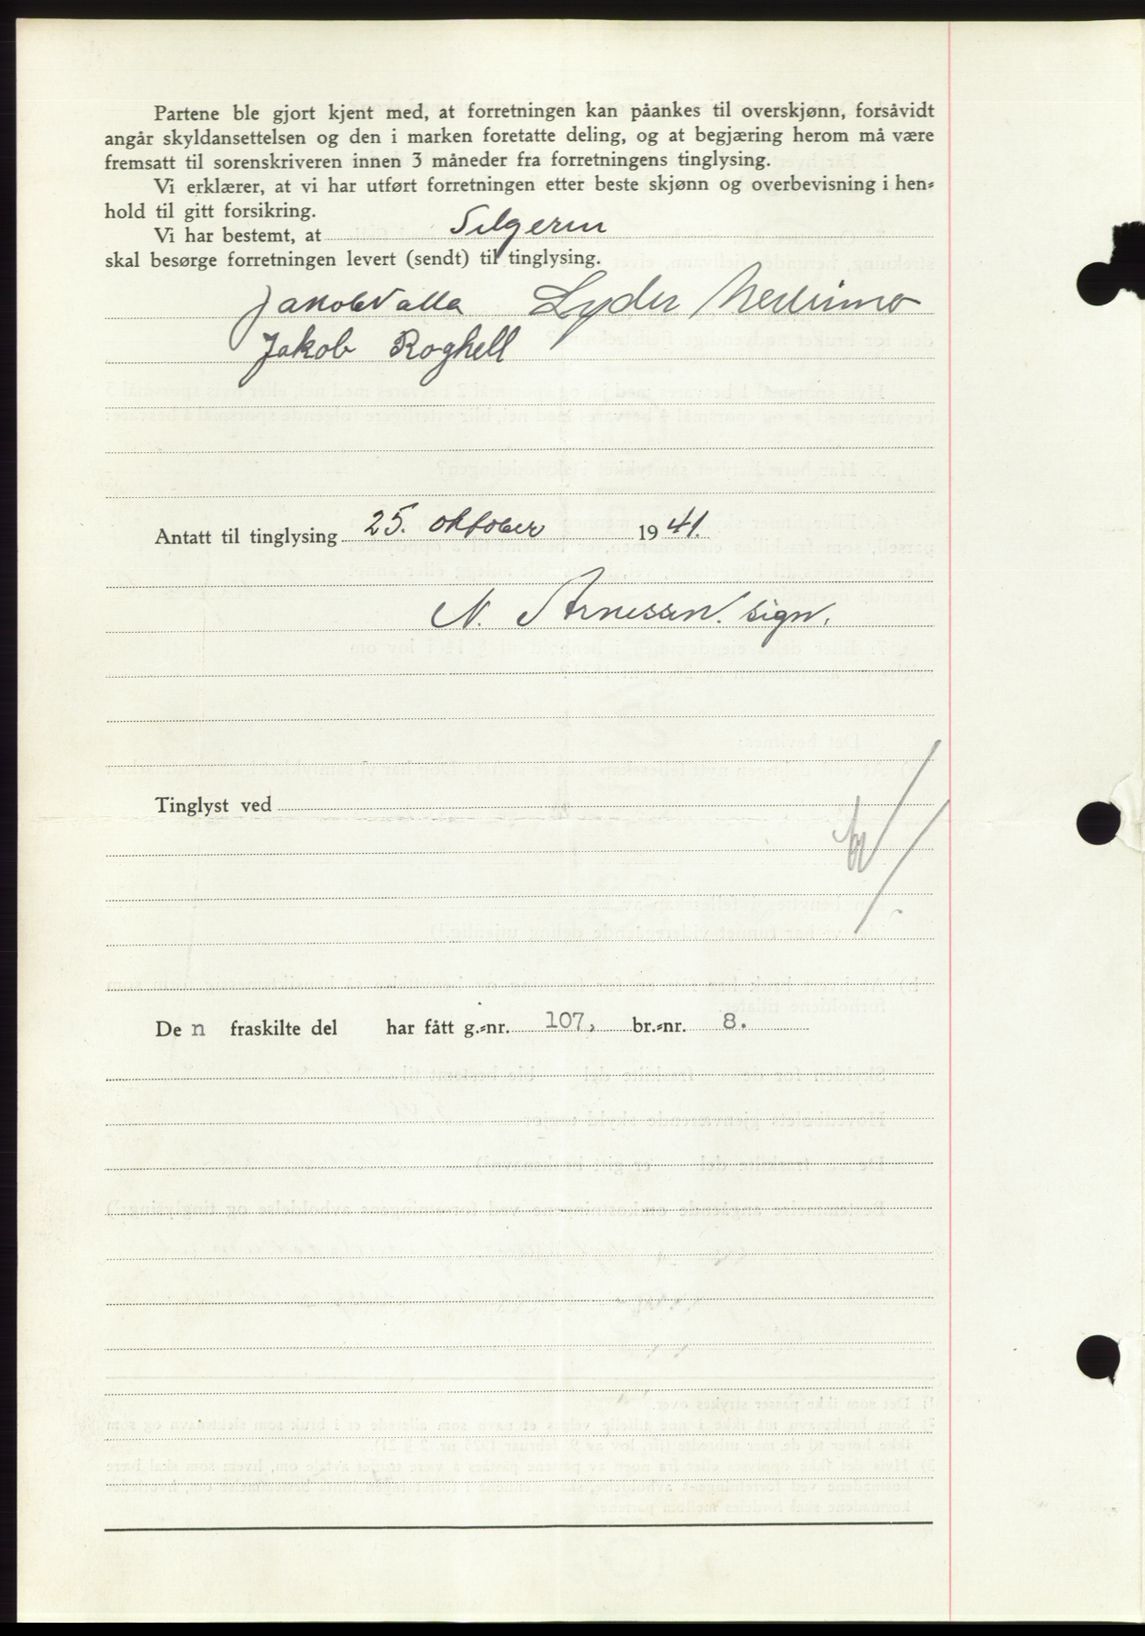 Partene ble gjort kjent med, at forretningen kan påankes til overskjønn, forsåvidt
angår skyldansettelsen og den i marken foretatte deling, og at begjæring herom må være
fremsatt til sorenskriveren innen 3 måneder fra forretningens tinglysing.
Vi erklærer, at vi har utført forretningen etter beste skjønn og overbevisning i hen-
hold til gitt forsikring.
Vi har bestemt, at Selgeren
skal besørge forretningen levert (sendt) til tinglysing.
Jakob Valla Lyder
Jakob Roghell
Antatt til tinglysing 25. oktober 1941.
N. Arnesen. sign.
Tinglyst ved
Den fraskilte del har fått g.-nr. 107, br.-nr. 8.